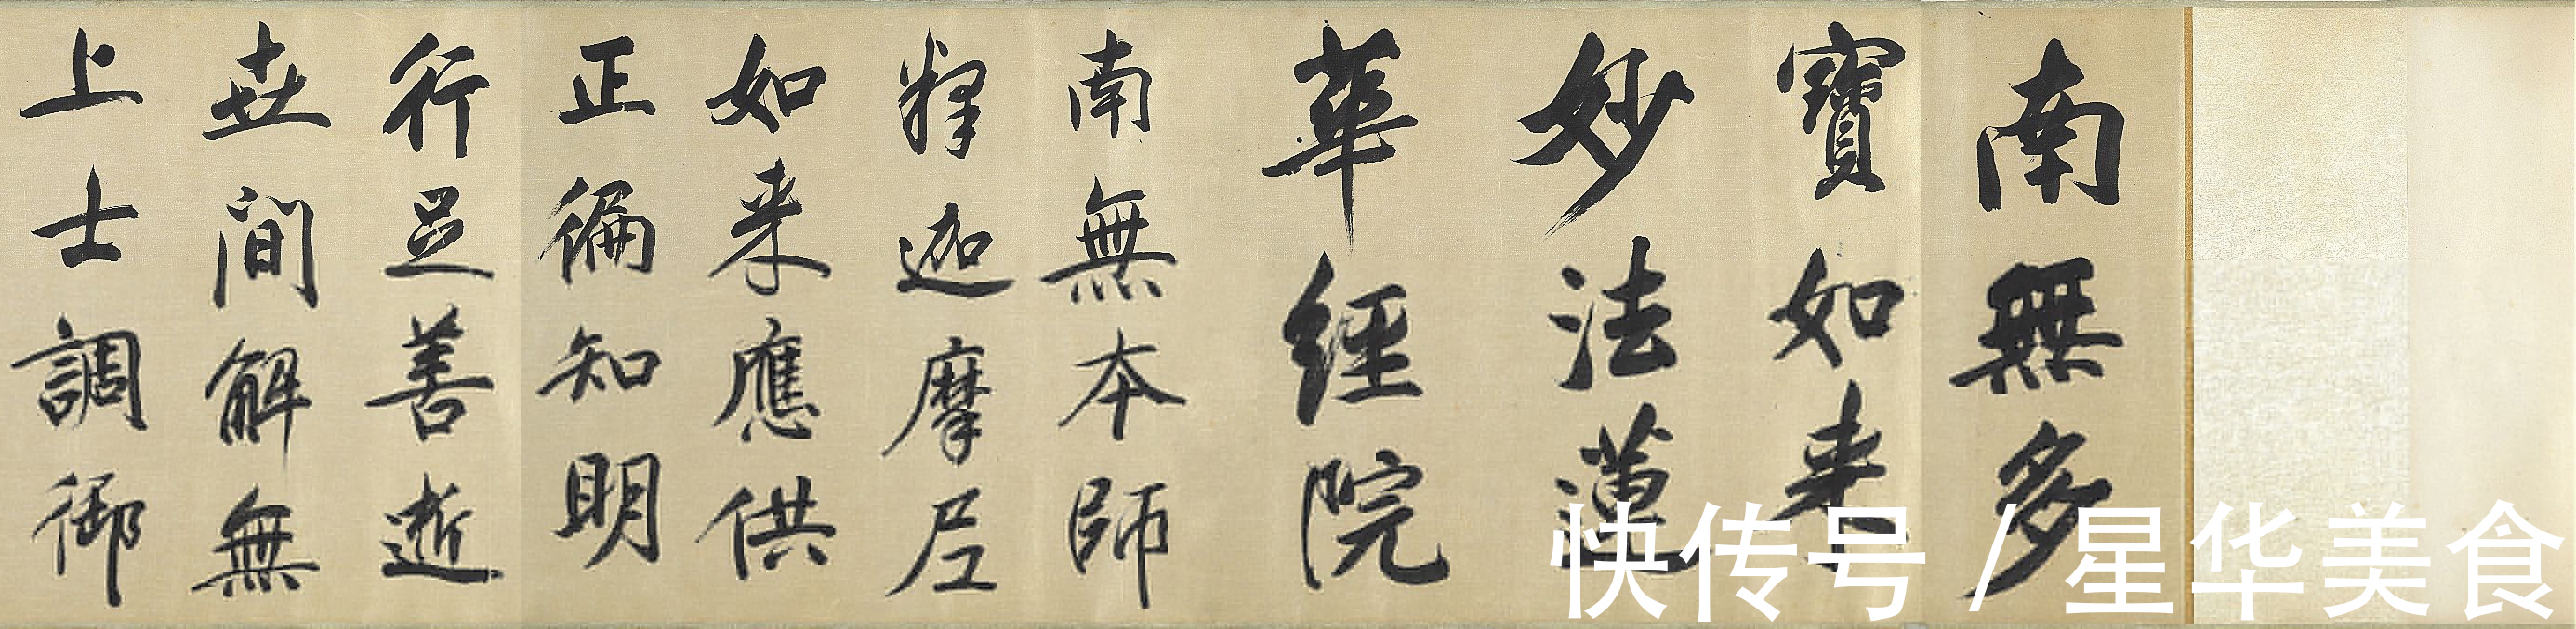 南無多
寶如来
妙法蓮
華經院
南無本師
釋迦摩尼
如来應供
正徧知明
行足善逝
世間解無
上士調御
快传号 / 星华美食